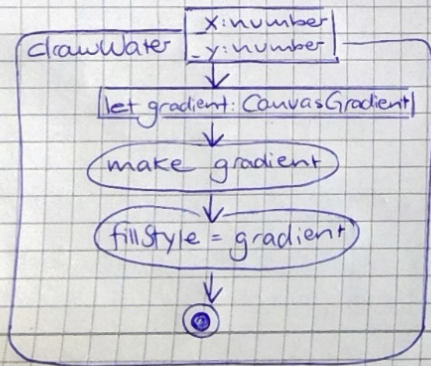 _x:number
drawWater
_y:number
let gradient: CanvasGradient
make gradient
fillStyle = gradient